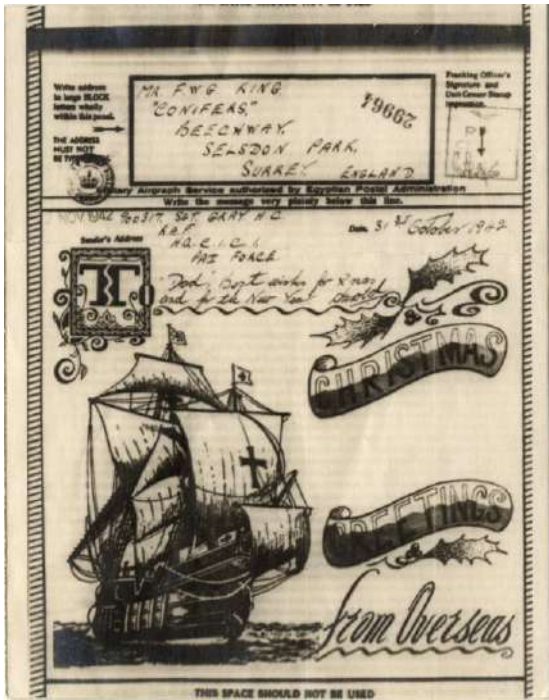 Write address
in large BLOCK
letters wholly
within this panel.
THE ADDRESS
MUST NOT
BE
MR F.W.G. KING
"CONIFERS,"
BEECHWAY,
SELSDON PARK,
SURREY. ENGLAND
29967
Franking Officer's
Signature and
Unit Censor Stamp
Impression.
Military Airgraph Service authorised by Egyptian Postal Administration
Write the message very plainly below this line.
Sender's Address
900317. SGT. GRAY H.C.
R.A.F.
H.Q.C.I.C.I.
PAI FORCE
Date. 31st October 1942
TO
Dad; Best wishes for Xmas
and for the New Year
CHRISTMAS
GREETINGS
from Overseas
THIS SPACE SHOULD NOT BE USED